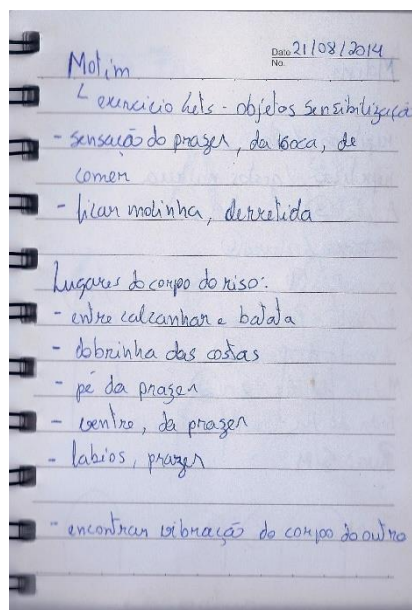 Date 21/08/2014
No.
Motim
└ exercício Lets - objetos sensibilização
- sensação do prazer, da boca, de
comer
- ficar molinha, derretida
Lugares do corpo do riso:
- entre calcanhar e batata
- dobrinha das costas
- pé da prazer
- ventre, da prazer
- labios, prazer
- encontrar vibração do corpo do outro